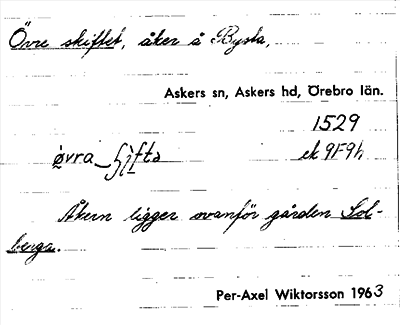 Övre skiftet, åker å Bysta,
Askers sn, Askers hd, Örebro län.
1529
øvra ek 9F9h
Åkern ligger ovanför gården Sol-
berga.
Per-Axel Wiktorsson 1963